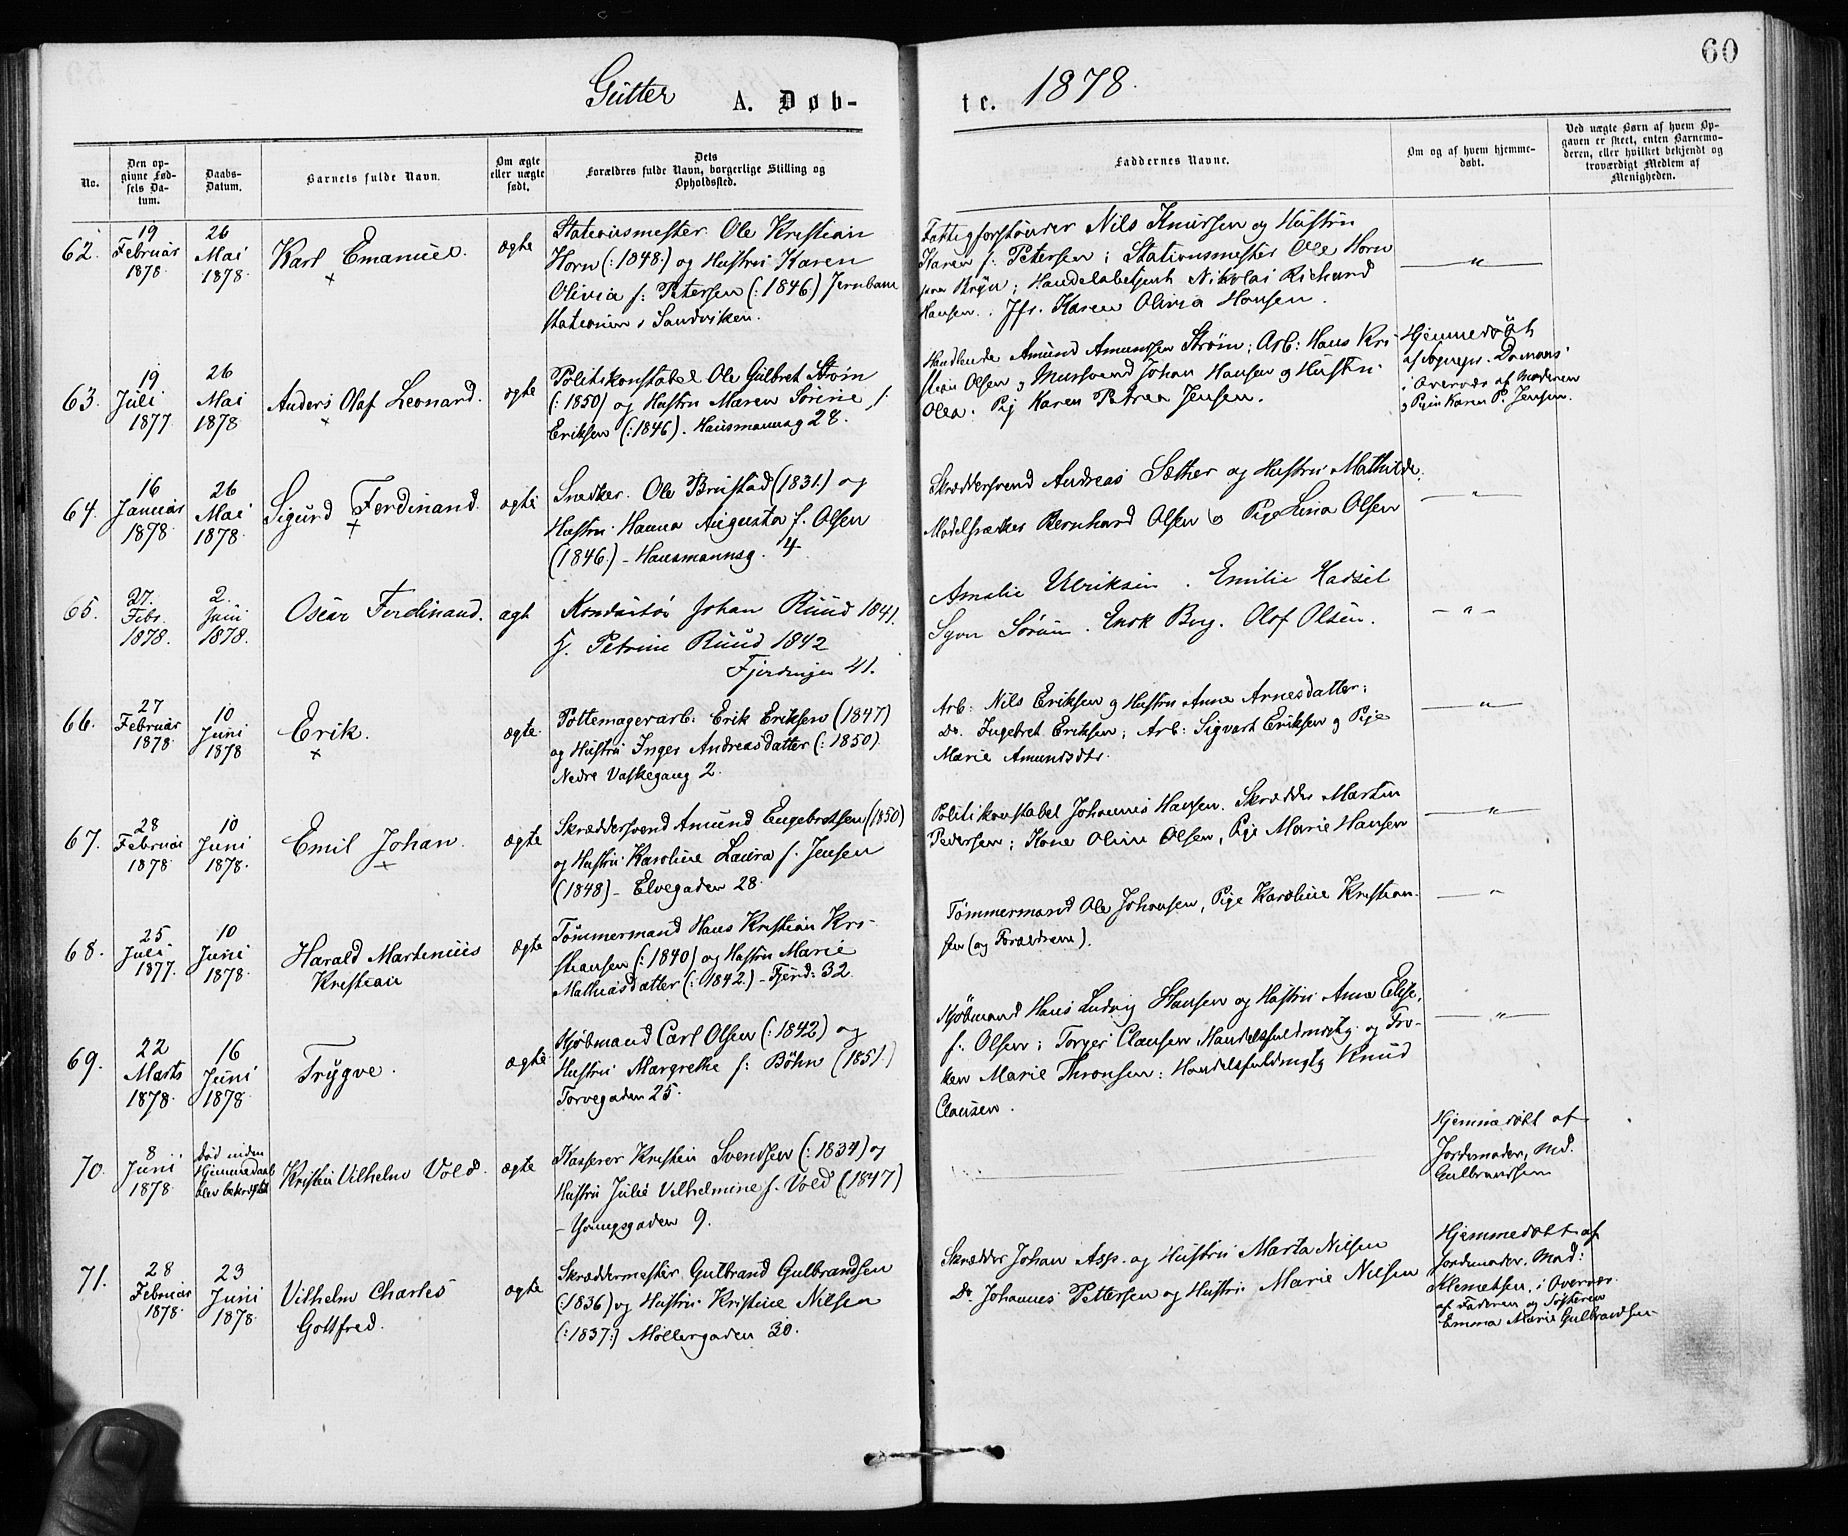 60
Gutter A. Døb-
te. 1878.
No.
Den op-
givne Fød-
sels Da-
tum.
Daabs-
Datum.
Barnets fulde Navn.
Om ægte
eller uægte
født.
Dets
Forældres fulde Navn, borgerlige Stilling og
Opholdssted.
Faddernes Navne.
Om og af hvem hjemme-
døbt.
Ved uægte Børn af hvem Op-
gaven er skeet, enten Barnemo-
deren, eller hvilket bekjendt og
troværdigt Medlem af
Menigheden.
62.
19
Februar
1878.
26
Mai
1878.
Karl Emanuel.
×
ægte
Stationsmester Ole Kristian
Horn (: 1848:) og Hustru Karen
Olivia f: Petersen (: 1846) Jernbane
stationen i Sandviken.
Fattigforstander Nils Knutsen og Hustru
Karen f. Petersen; Stationsmester Ole Horn
paa Bryn; Handelsbetjent Nikolai Richard
Hansen. Jfr. Karen Olivia Hansen.
—"—
63.
19
Juli
1877.
26
Mai
1878.
Anders Olaf Leonard.
×
ægte
Politikonstabel Ole Gulbret Strøm
(: 1850) og Hustru Maren Sørine f:
Eriksen (: 1846). Hausmannsg 28.
Handlende Amund Amundsen Strøm; Arb: Hans Kri-
stian Olsen og Mursvend Johan Hansen og Hustru
Olea. Pig Karen Petrea Jensen.
Hjemmedøbt
af Sognepr. Damans
i Overvær af Moderen
og Pigen Karen P. Jensen.
64.
16
Januar
1878.
26
Mai
1878.
Sigurd Ferdinand.
×
ægte
Snedker Ole Brustad (1831.) og
Hustru Hanna Augusta f. Olsen
(1846.) – Hausmannsg. 4.
Skræddersvend Andreas Sæther og Hustru Mathilde.
Modelsnekker Bernhard Olsen & Pige Lina Olsen
—"—
65.
27.
Febr.
1878.
2.
Juni
1878.
Oscar Ferdinand.
ægt
Konduktør Johan Ruud 1841.
f. Petrine Ruud 1842
Fjerdingen 41.
Amalie Ulriksen. Emilie Hadsel
Syver Sørum. Enok Berg. Olof Olsen.
—"—
66.
27
Februar
1878.
10
Juni
1878
Erik.
×
ægte.
Pottemagerarb: Erik Eriksen (1847)
og Hustru Inger Andreasdatter (: 1850).
Nedre Vaskegang 2.
Arb: Nils Eriksen og Hustru Anne Arnesdatter;
Do. Ingebret Eriksen; Arb: Sigvart Eriksen og Pige
Marie Amundsdtr.
—"—
67.
28
Februar
1878
10
Juni
1878.
Emil Johan.
×
ægte
Skræddersvend Amund Engebretsen (1850)
og Hustru Karoline Laura f. Jensen
(1848) – Elvegaden 28.
Politikonstabel Johannes Hansen. Skrædder Martin
Pedersen; Kone Oline Olsen, Pige Marie Hansen
—"—
68.
25
Juli
1877.
10
Juni
1878.
Harald Martenius
Kristian
ægte
Tømmermand Hans Kristian Kri-
stiansen (: 1840) og Hustru Marie
Mathiasdatter (: 1842.) – Fjerd: 32
Tømmermand Ole Johansen, Pige Karoline Kristian-
sen (og Forældrene).
—"—
69.
22
Marts
1878.
16
Juni
1878.
Trygve.
ægte
Kjøbmand Carl Olsen (: 1842) og
Hustru Margrethe f: Bøhn (1851.)
Torvegaden 25.
Kjøbmand Hans Ludvig Hansen og Hustru Anne Elise,
f: Olsen; Torger Clausen Handelsfuldmægtig og Frø-
ken Marie Thronsen: Handelsfuldmægtig Knud
Clausen.
—"—
70.
8
Juni
1878
død inden
Hjemmedaab
blev bekræftet
Kristen Vilhelm Vold.
ægte
Kasserer Kristen Svendsen (: 1834) og
Hustru Julie Vilhelmine f. Vold (1847)
– Youngsgaden 9.
Hjemmedøbt af
Jordemoder, Md.
Gulbrandsen
71.
28
Februar
1878
23
Juni
1878.
Vilhelm Charles
Gottfred.
ægte
Skræddermester Gulbrand Gulbrandsen
(: 1836) og Hustru Kristine Nilsen
(: 1837:) Møllergaden 30.
Skrædder Johan Asp og Hustru Marta Nilsen
Do. Johannes Pettersen og Hustru Marie Nilsen
Hjemmedøbt af
Jordemoder Mad:
Klemetsen, i Overvær
af Faderen og Søsteren
Emma Marie Gulbrandsen